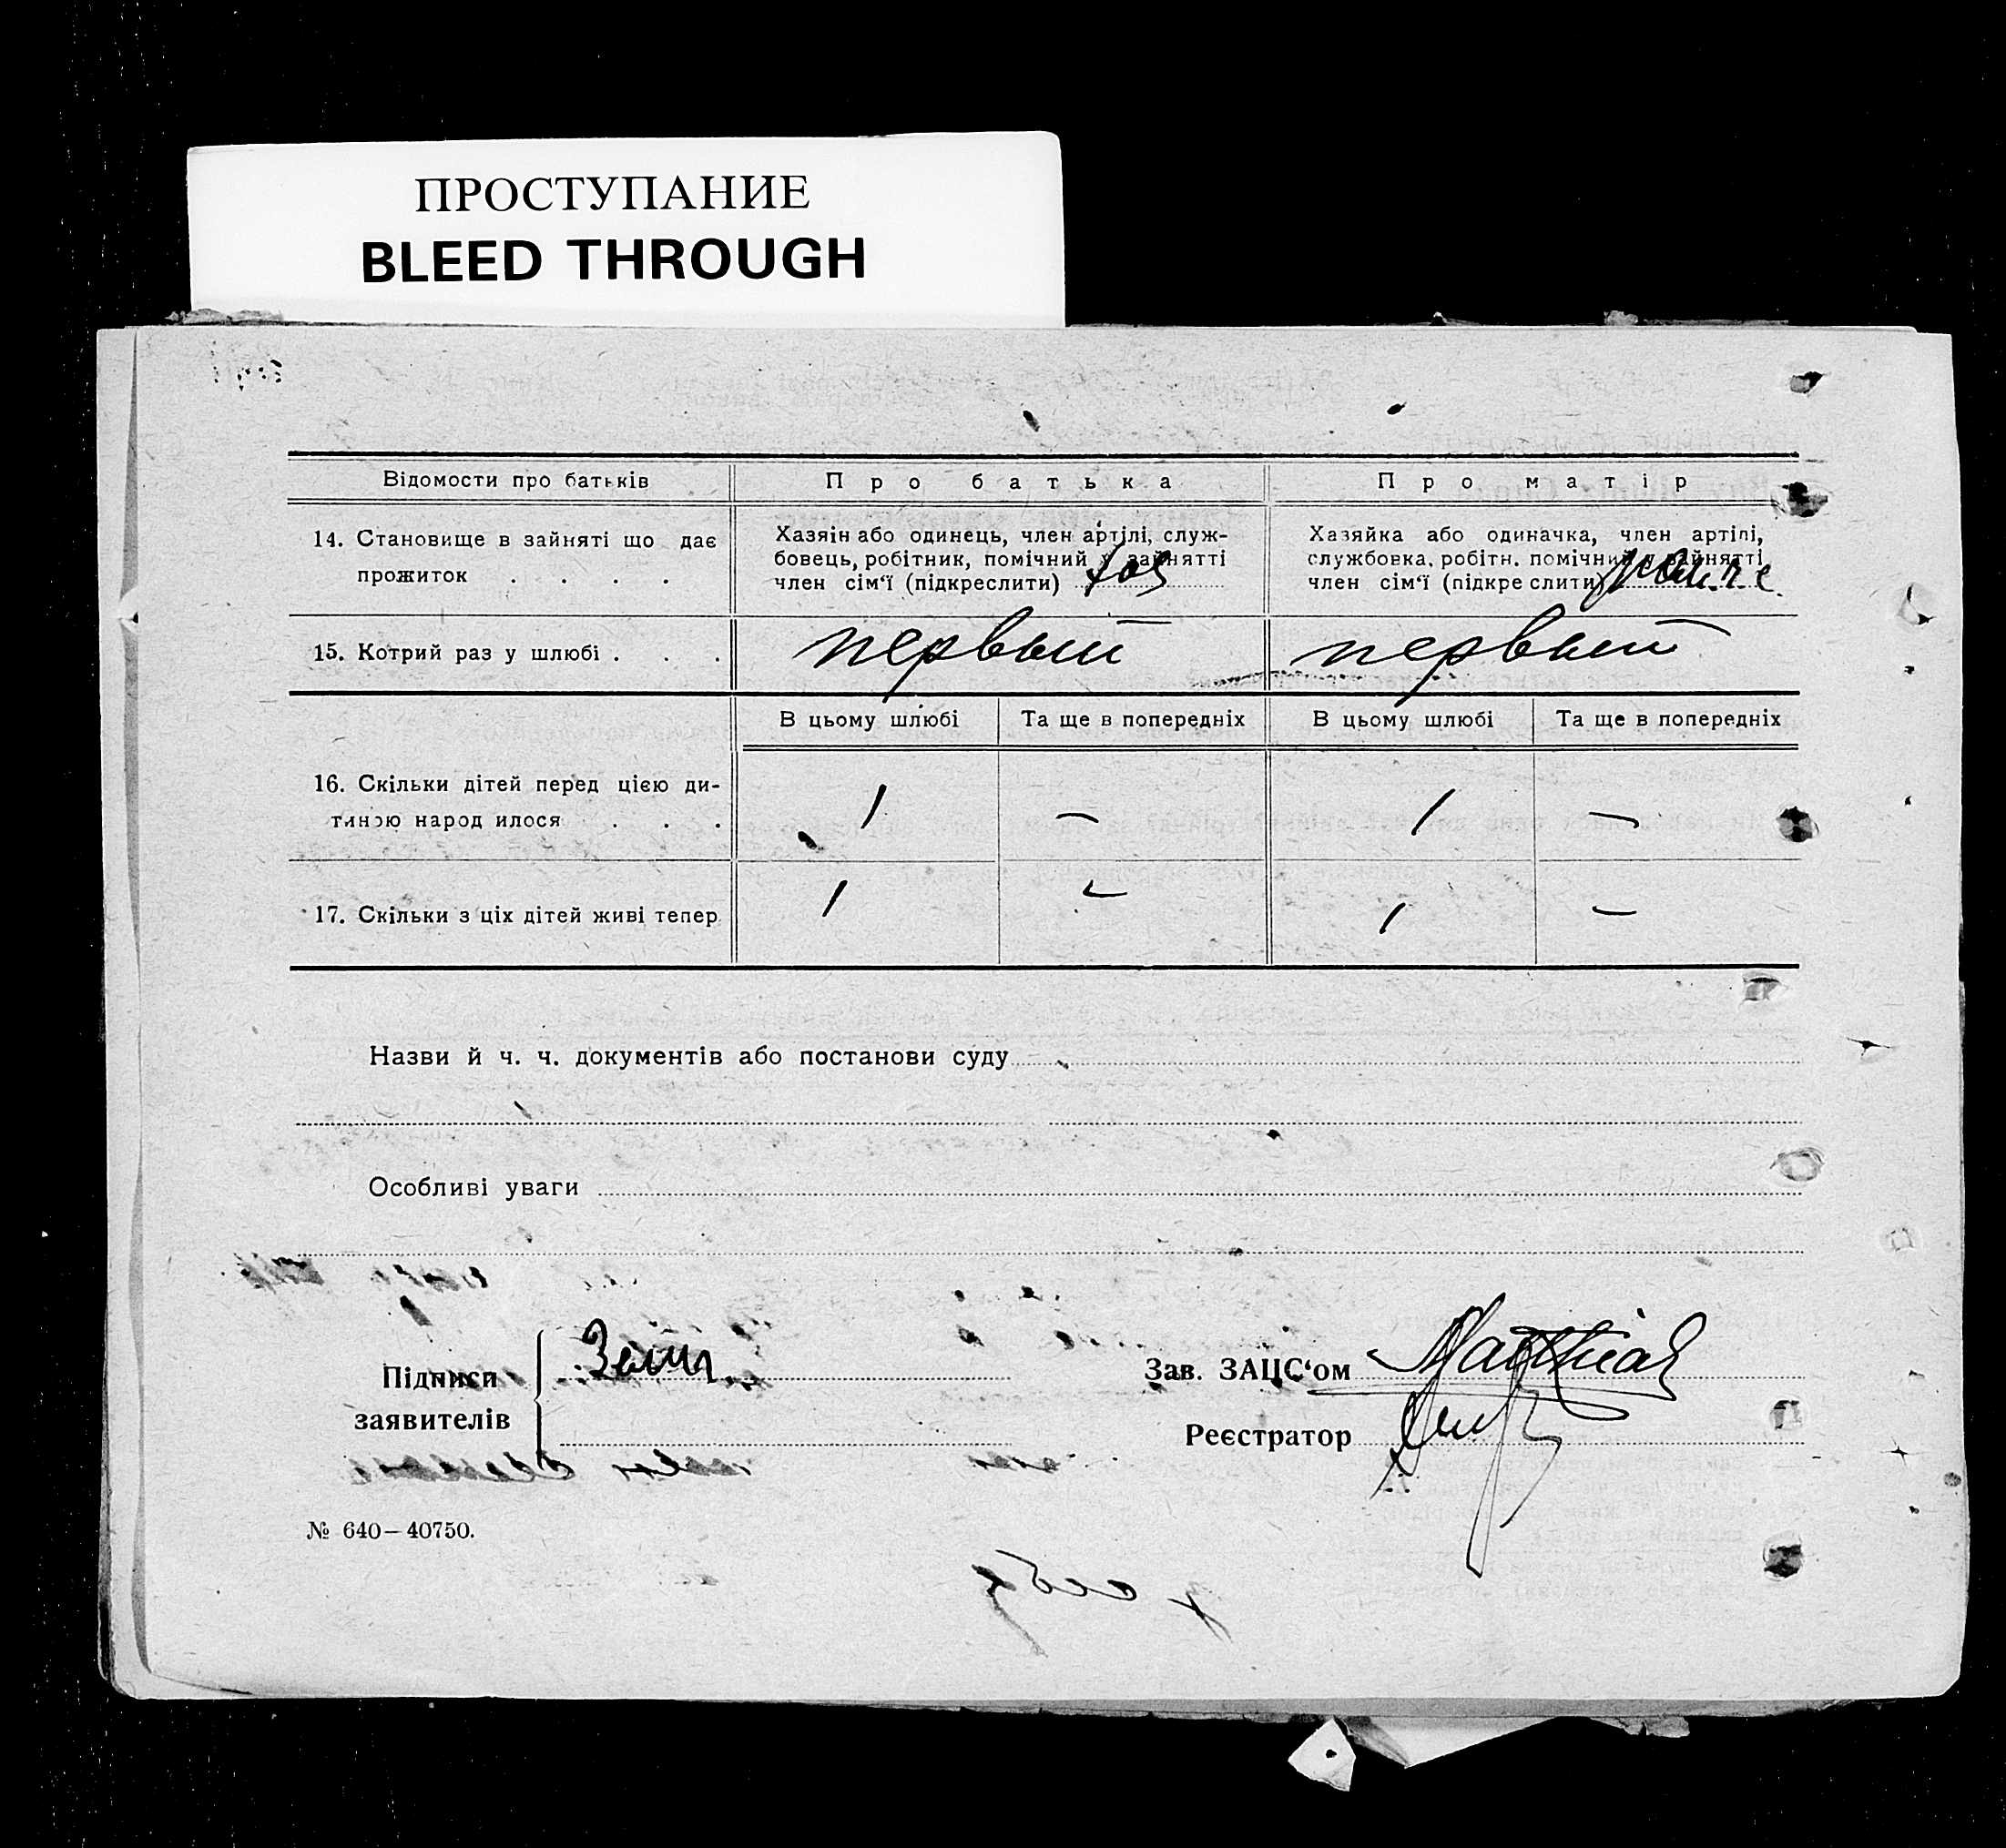 ПРОСТУПАНИЕ
BLEED THROUGH
Відомости про батьків
Про батька
Про матір
14. Становище в зайняті що дає
прожиток . . . .
Хазяін або одинець, член артілі, служ-
бовець, робітник, помічний у зайнятті
член сім'ї (підкреслити) хоз
Хазяйка або одиначка, член артілі,
службовка, робітн. помічний у зайнятті
член сім'ї (підкреслити)
15. Котрий раз у шлюбі . . .
первый
первый
В цьому шлюбі
Та ще в попередніх
В цьому шлюбі
Та ще в попередніх
16. Скільки дітей перед цією ди-
тиною народилося . . .
1
—
1
—
17. Скільки з ціх дітей живі тепер
1
—
1
—
Назви й ч. ч. документів або постанови суду
Особливі уваги
Підписи
заявителів
Зав. ЗАЦС'ом
Реєстратор
№ 640–40750.